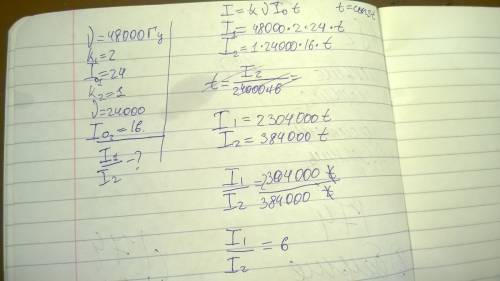 ν=48000Гц
k₁=2
I₀₁=24
k₂=1
ν=24000
I₀₂=16.
I₁/I₂ -?
I = k ν I₀ t t=const
I₁=48000·2·24·t
I₂=1·24000·16·t
t= I₂/24000·16 =
I₁=2304000t
I₂=384000t
I₁/I₂ = 2304000 t/384000 t
I₁/I₂ = 6